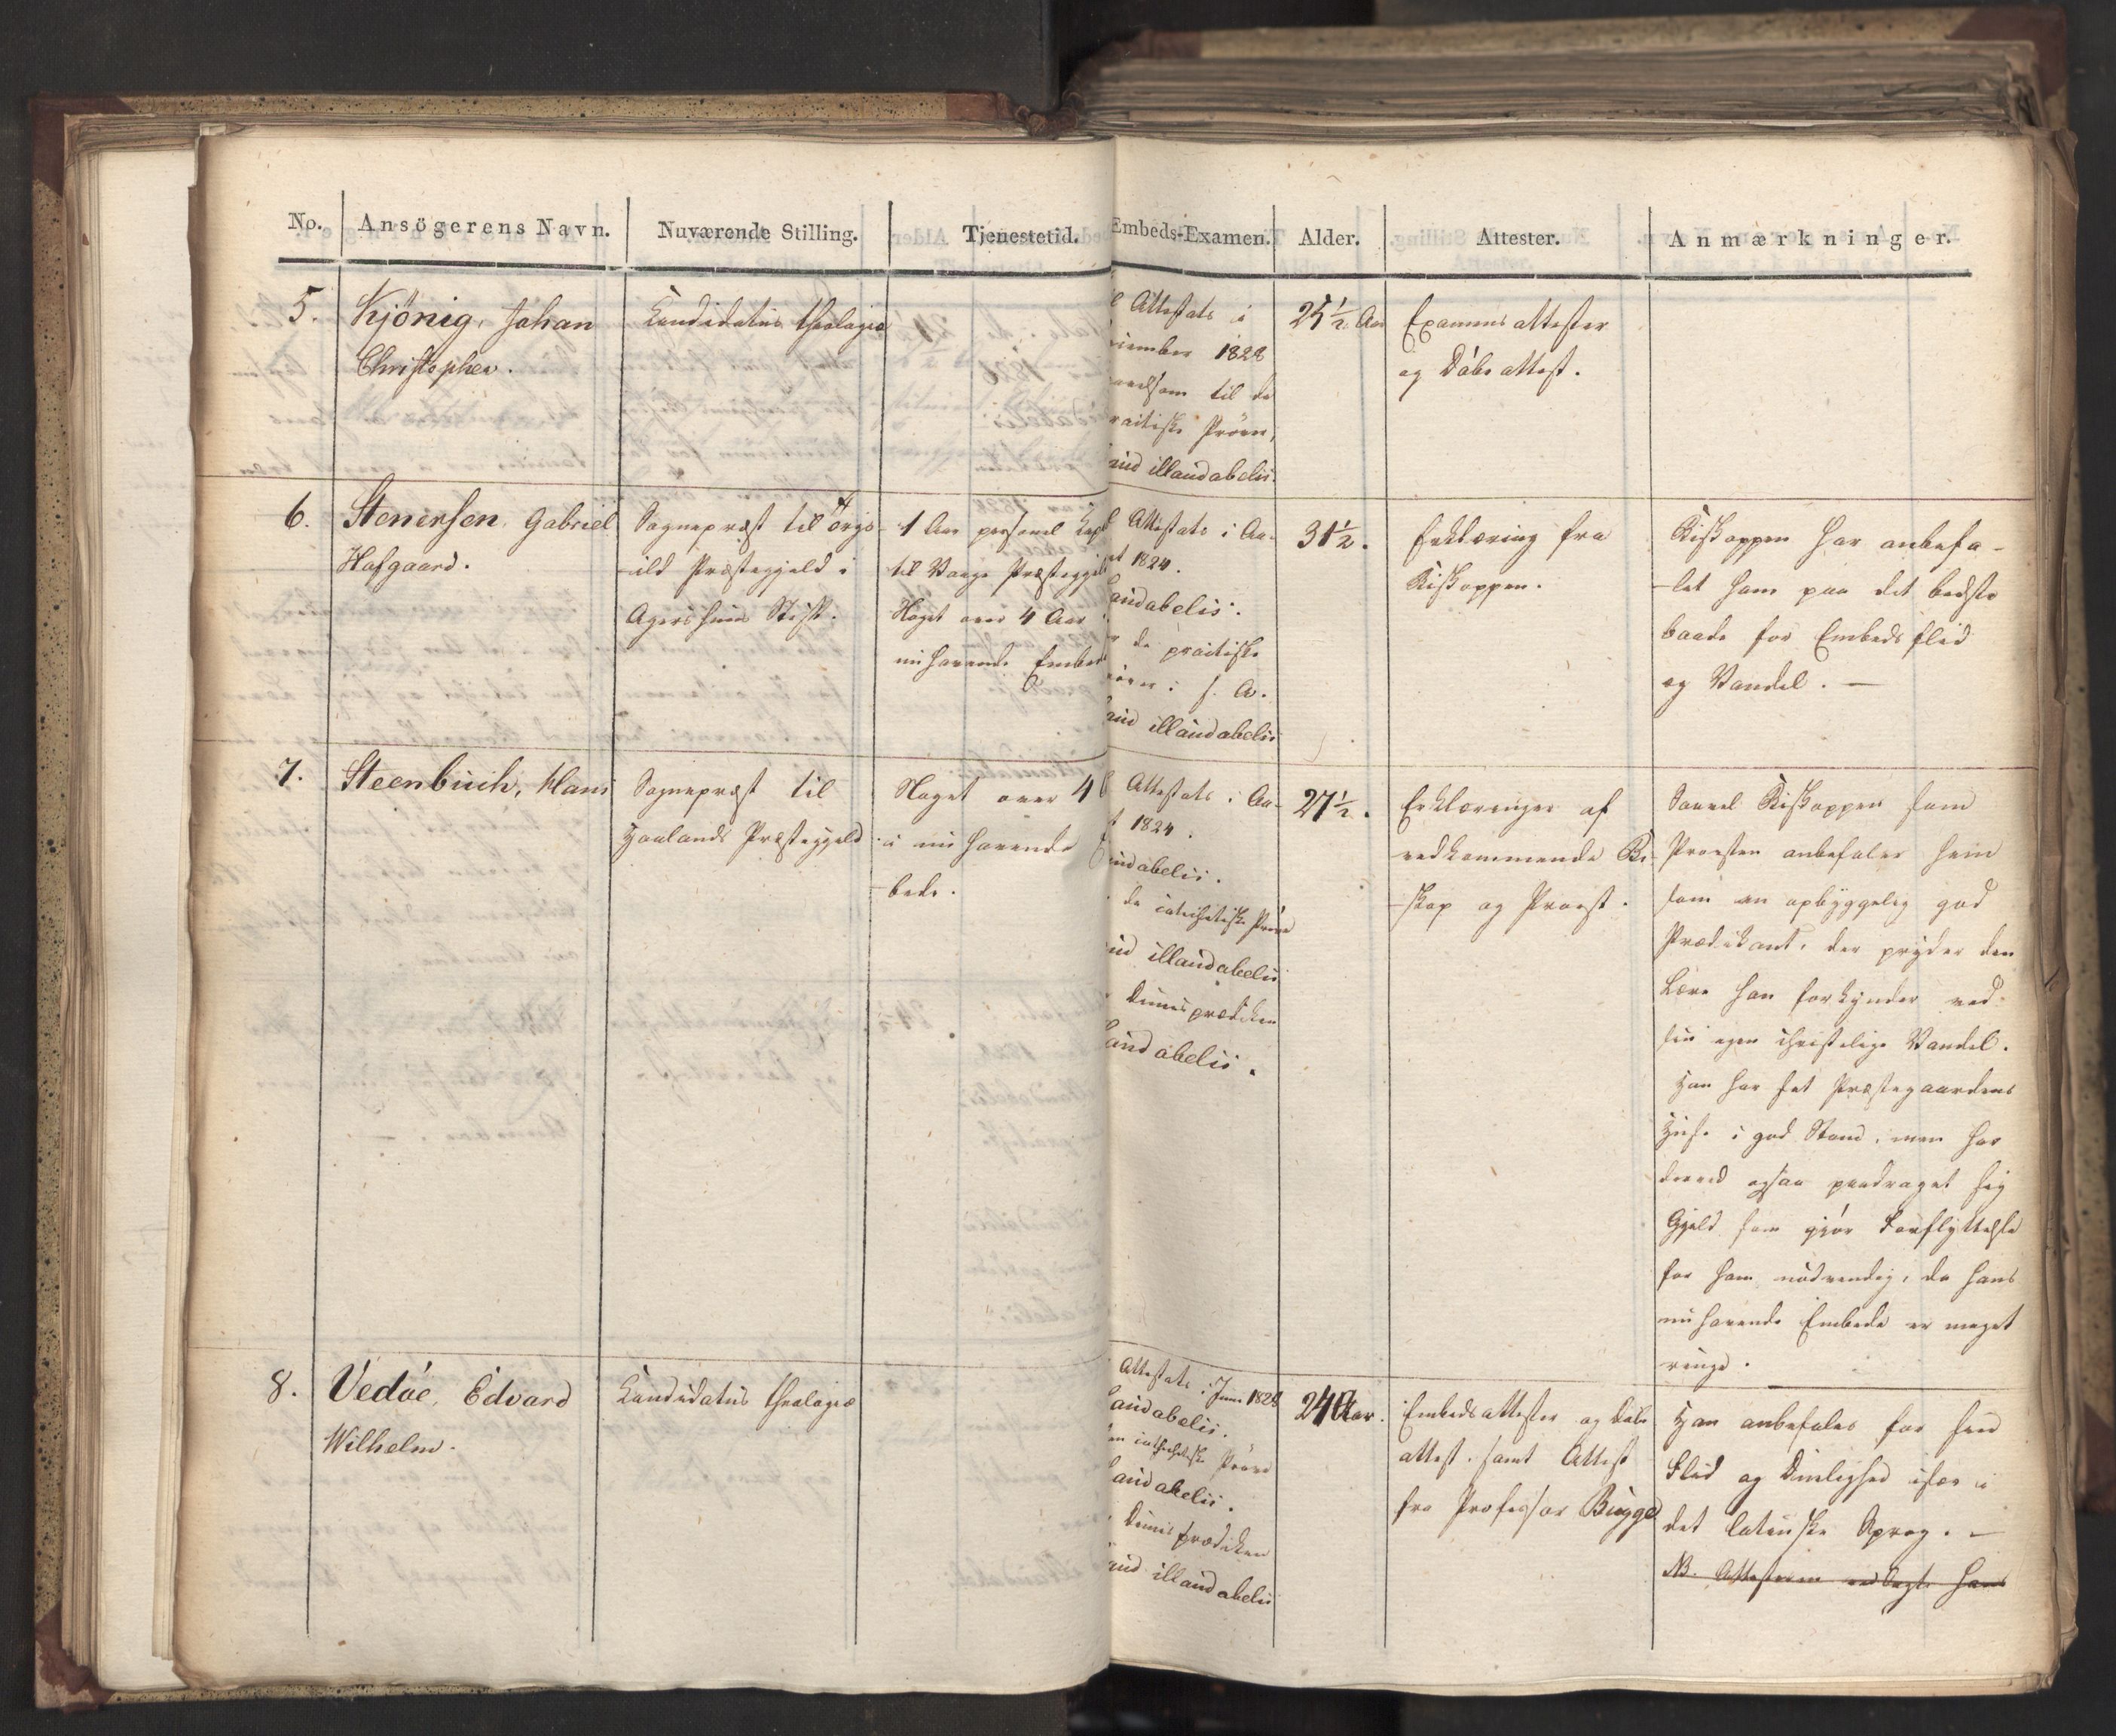 No. Ansögerens Navn. Nuværende Stilling. Tjenestetid. Embeds-Examen. Alder. Attester. Anmærkninger.
5.
Kjönig, Johan
Christopher.
Candidatus theologiæ
Attestats i
1828
til de
practiske Prøver,
haud illaudabilis.
25 1/2 Aar
Examensattester
og Døbeattest.
6.
Stenersen, Gabriel
Hofgaard.
Sognepræst til
Præstegjeld i
Agershuus Stift.
1 Aar personel Cap
til Vaage Præstegjeld
Noget over 4 Aar i
nuhavende Embede
Attestats i Au-
1824.
laudabilis.
de practiske
s. A.
haud illaudabilis
31 1/2.
Erklæring fra
Biskoppen.
Biskoppen har anbefa-
-let ham paa det bedste
baade for Embedsflid
og Vandel. —
7.
Steenbuch, Hans
Sognepræst til
Haalands Præstegjeld
Noget over 4
i nuhavende
bede.
Attestats i Au-
1824.
laudabilis.
de catechetiske Prøve
haud illaudabilis
Dimisprædiken
laudabilis.
27 1/2.
Erklæringer af
vedkommende Bi-
-skop og Provst.
Saavel Biskoppen som
Provsten anbefaler ham
som en opbyggelig god
Prædikant, der pryder den
Lære han forkynder ved
sin egen christelige Vandel.
Han har sat Præstegaardens
Huse i god Stand, men har
derved ogsaa paadraget sig
Gjeld som gjør Forflyttelse
for ham nødvendig, da hans
nuhavende Embede er meget
ringe.
8.
Vedöe, Edvard
Wilhelm.
Candidatus theologiæ
Attestats i Juni 1828
laudabilis.
den catechetiske Prøve
laudabilis.
Dimisprædiken
haud illaudabilis
24 Aar.
Embedsattester og Døbe
attest, samt Attest
fra Professor Bugge
Han anbefales for sin
Flid og Duelighed især i
det latinske Sprog. —
NB. Attesterne vedlagt hans